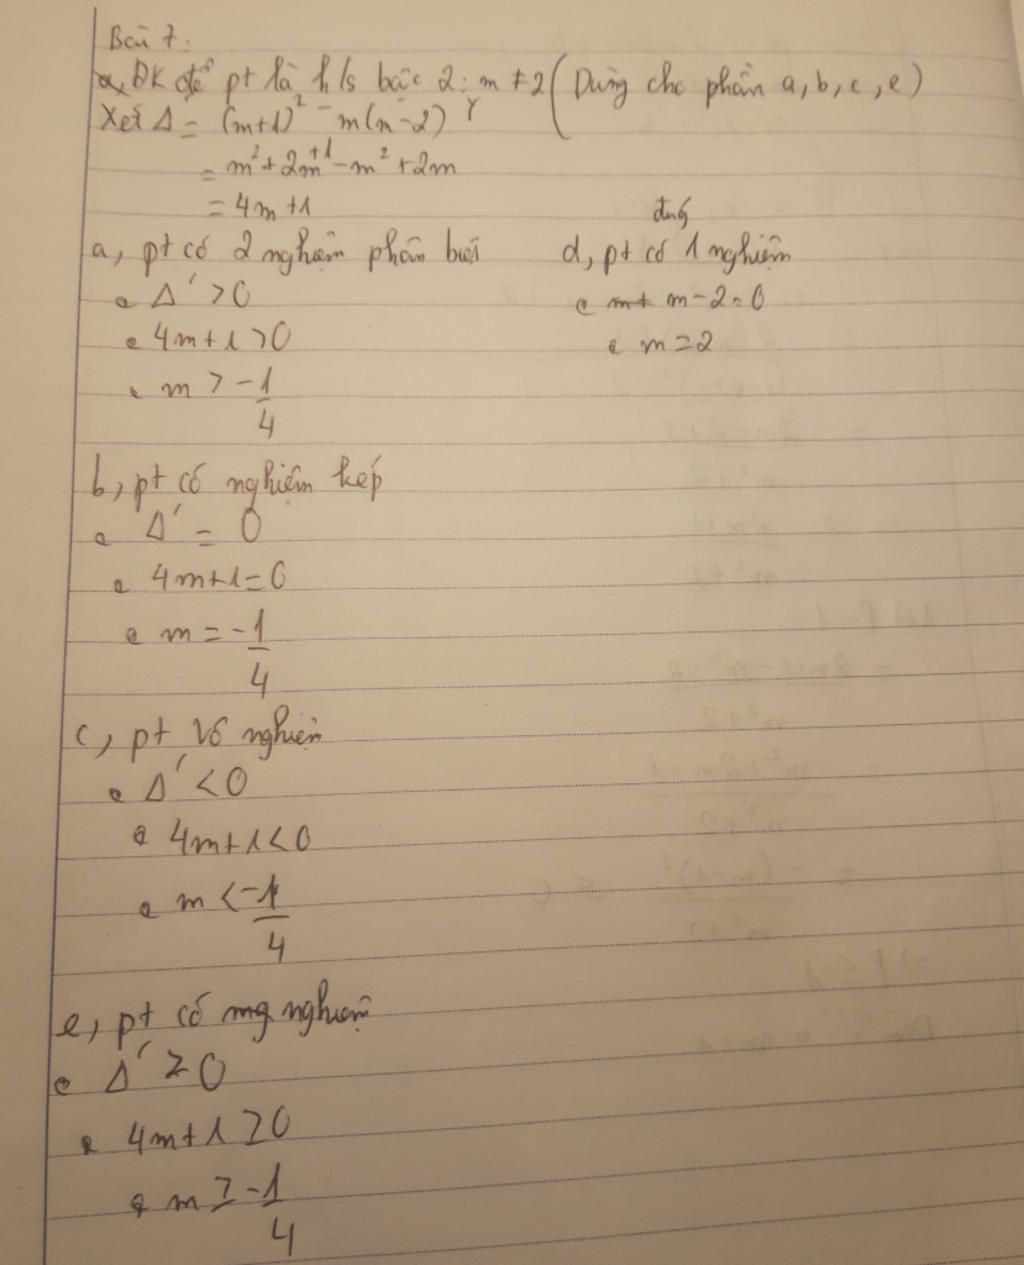 Bài 7:
a, ĐK để pt là h/s bậc 2: m ≠ 2 (Dùng cho phần a, b, c, e)
Xét Δ = (m+1)² - m(m-2)
= m² + 2m +1 - m² + 2m
= 4m +1
a, pt có 2 nghiệm phân biệt
Δ' > 0
4m + 1 > 0
m > -1/4
d, pt có đúng 1 nghiệm
m - 2 = 0
m = 2
b, pt có nghiệm kép
Δ' = 0
4m+1 = 0
m = -1/4
c, pt vô nghiệm
Δ' < 0
4m+1 < 0
m < -1/4
e, pt có nghiệm
Δ' ≥ 0
4m + 1 ≥ 0
m ≥ -1/4